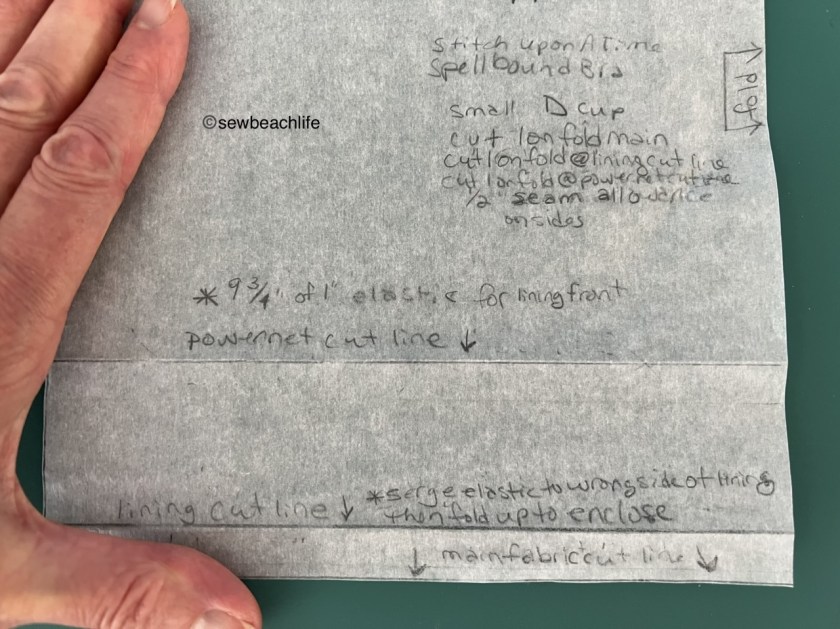 Stitch upon A Time
Spellbound Bra
small D cup
cut 1 on fold main
cut 1 on fold @ lining cut line
cut 1 on fold @ powernet cut line
1/2 seam allowance
on sides
©sewbeachlife
* 9 3/4" of 1" elastic for lining front
powernet cut line ↓
*serge elastic to wrong side of lining
then fold up to enclose
lining cut line ↓
↓ main fabric cut line ↓